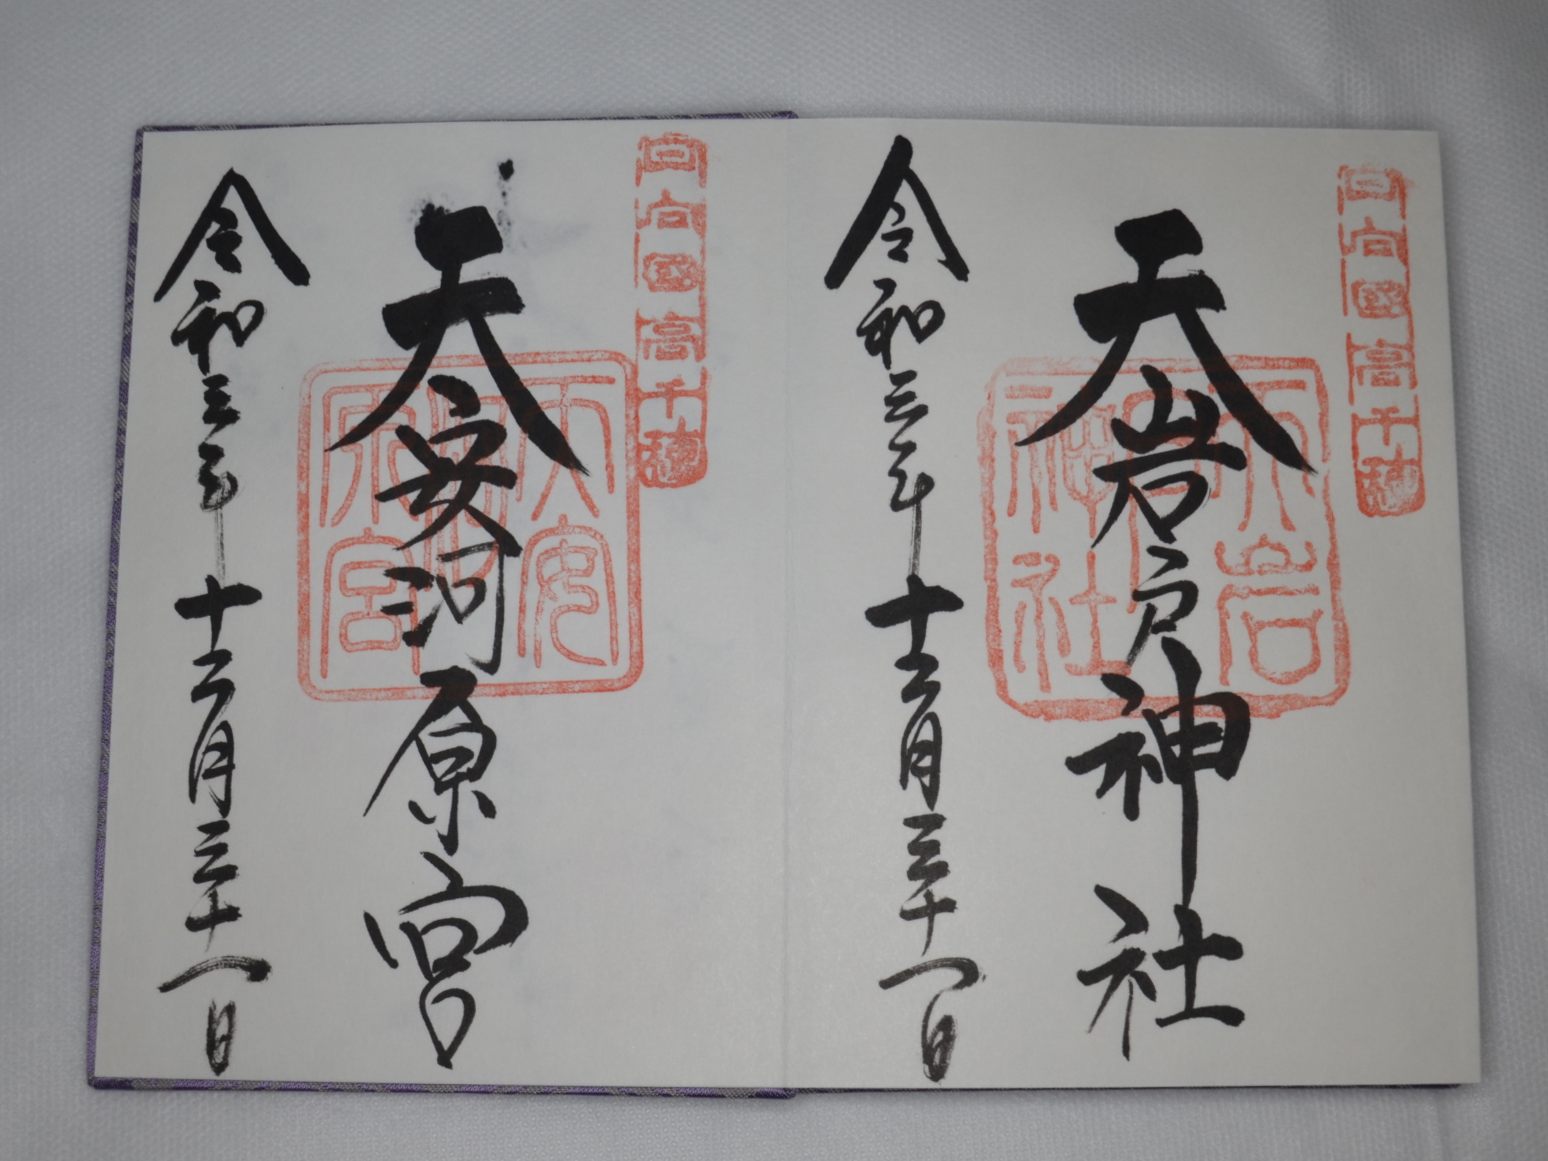 日向國高千穂
天岩戸神社
天岩戸神社
令和三年十二月三十一日
日向國高千穂
天安河原宮
天安河原宮
令和三年十二月三十一日